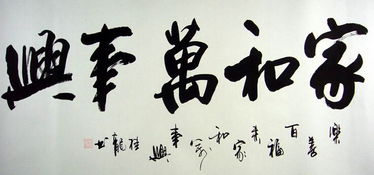 家和萬事興
樂善百福來家和萬事興 桂龍書